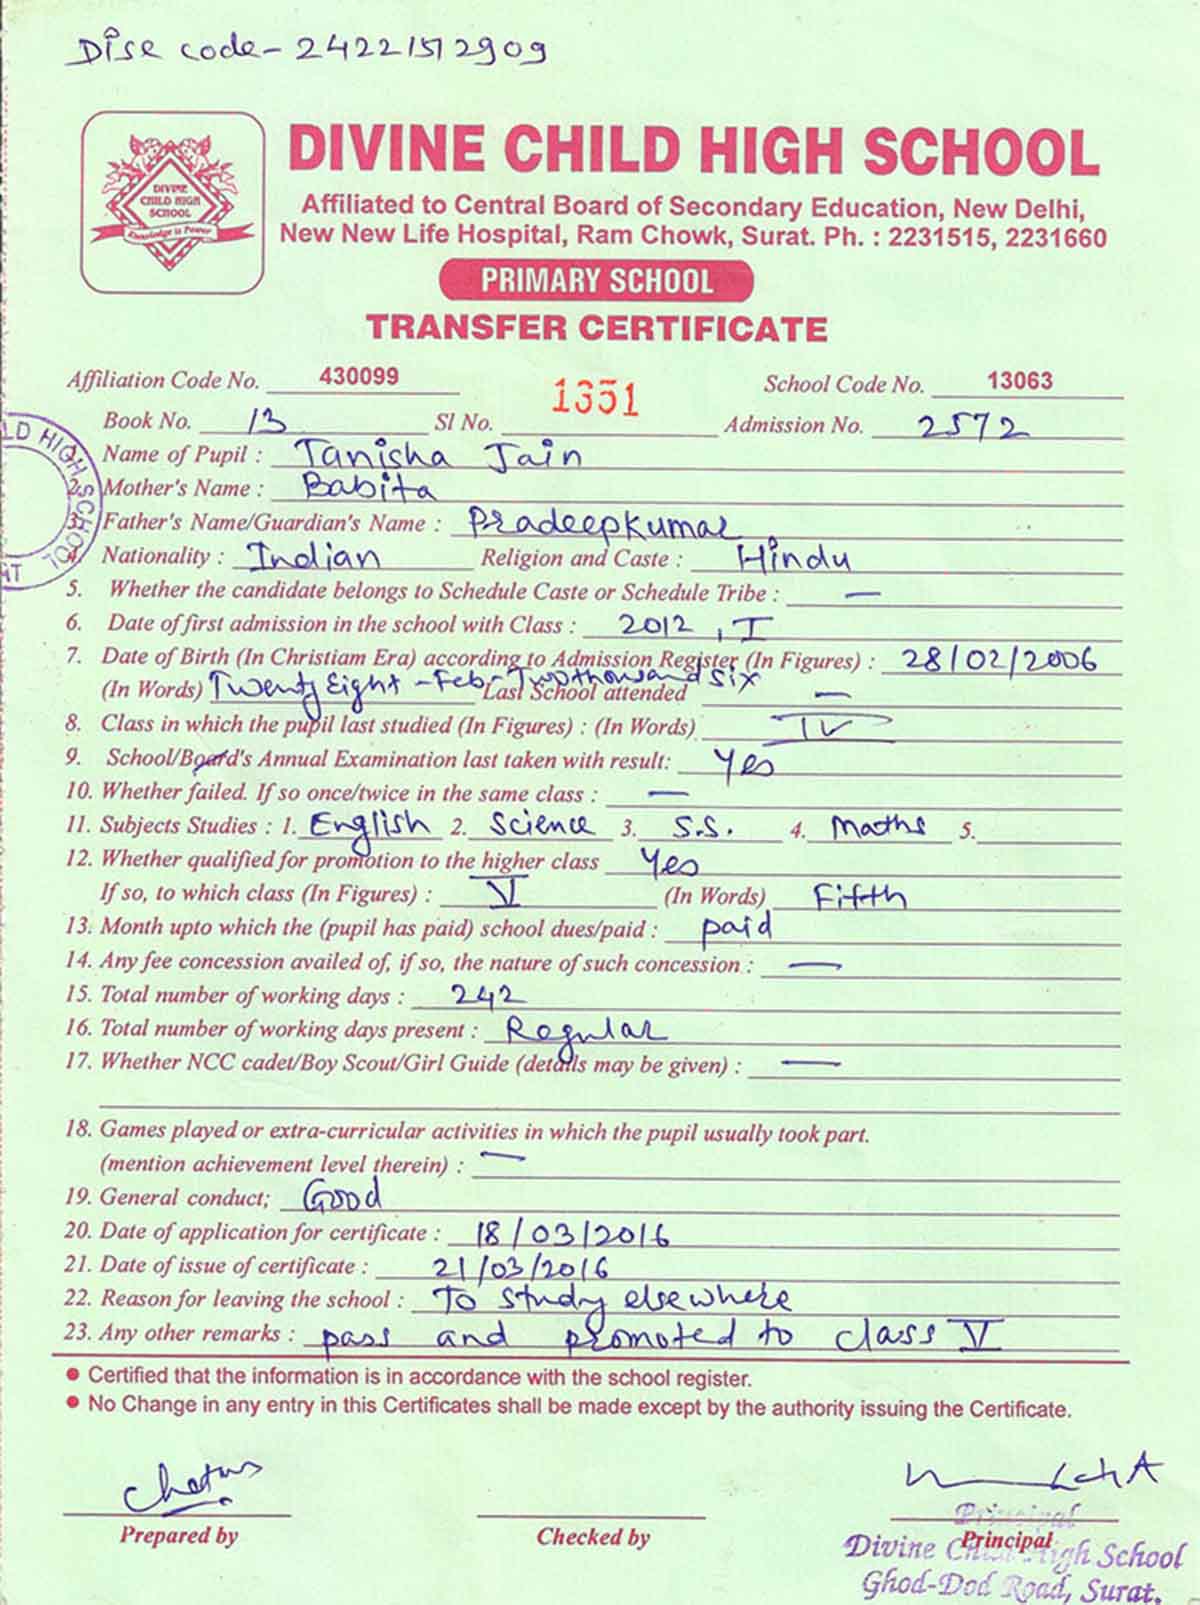 Dise code - 24221512909
DIVINE
CHILD HIGH
SCHOOL
Knowledge is Power
DIVINE CHILD HIGH SCHOOL
Affiliated to Central Board of Secondary Education, New Delhi,
New New Life Hospital, Ram Chowk, Surat. Ph. : 2231515, 2231660
PRIMARY SCHOOL
TRANSFER CERTIFICATE
Affiliation Code No. 430099 1351 School Code No. 13063
Book No. 13 Sl No. Admission No. 2572
LD HIGH SCHOOL
1. Name of Pupil : Tanisha Jain
2. Mother's Name : Babita
3. Father's Name/Guardian's Name : Pradeepkumar
4. Nationality : Indian Religion and Caste : Hindu
5. Whether the candidate belongs to Schedule Caste or Schedule Tribe : —
6. Date of first admission in the school with Class : 2012 , I
7. Date of Birth (In Christiam Era) according to Admission Register (In Figures) : 28/02/2006
(In Words) Twenty Eight - Feb - Twothousand six Last School attended —
8. Class in which the pupil last studied (In Figures) : (In Words) IV
9. School/Board's Annual Examination last taken with result: Yes
10. Whether failed. If so once/twice in the same class : —
11. Subjects Studies : 1. English 2. Science 3. S.S. 4. Maths 5.
12. Whether qualified for promotion to the higher class Yes
If so, to which class (In Figures) : V (In Words) Fifth
13. Month upto which the (pupil has paid) school dues/paid : paid
14. Any fee concession availed of, if so, the nature of such concession : —
15. Total number of working days : 242
16. Total number of working days present : Regular
17. Whether NCC cadet/Boy Scout/Girl Guide (details may be given) : —
18. Games played or extra-curricular activities in which the pupil usually took part.
(mention achievement level therein) : —
19. General conduct; Good
20. Date of application for certificate : 18/03/2016
21. Date of issue of certificate : 21/03/2016
22. Reason for leaving the school : To study elsewhere
23. Any other remarks : pass and promoted to class V
• Certified that the information is in accordance with the school register.
• No Change in any entry in this Certificates shall be made except by the authority issuing the Certificate.
Prepared by Checked by Principal
Principal
Divine Child High School
Ghod-Dod Road, Surat.